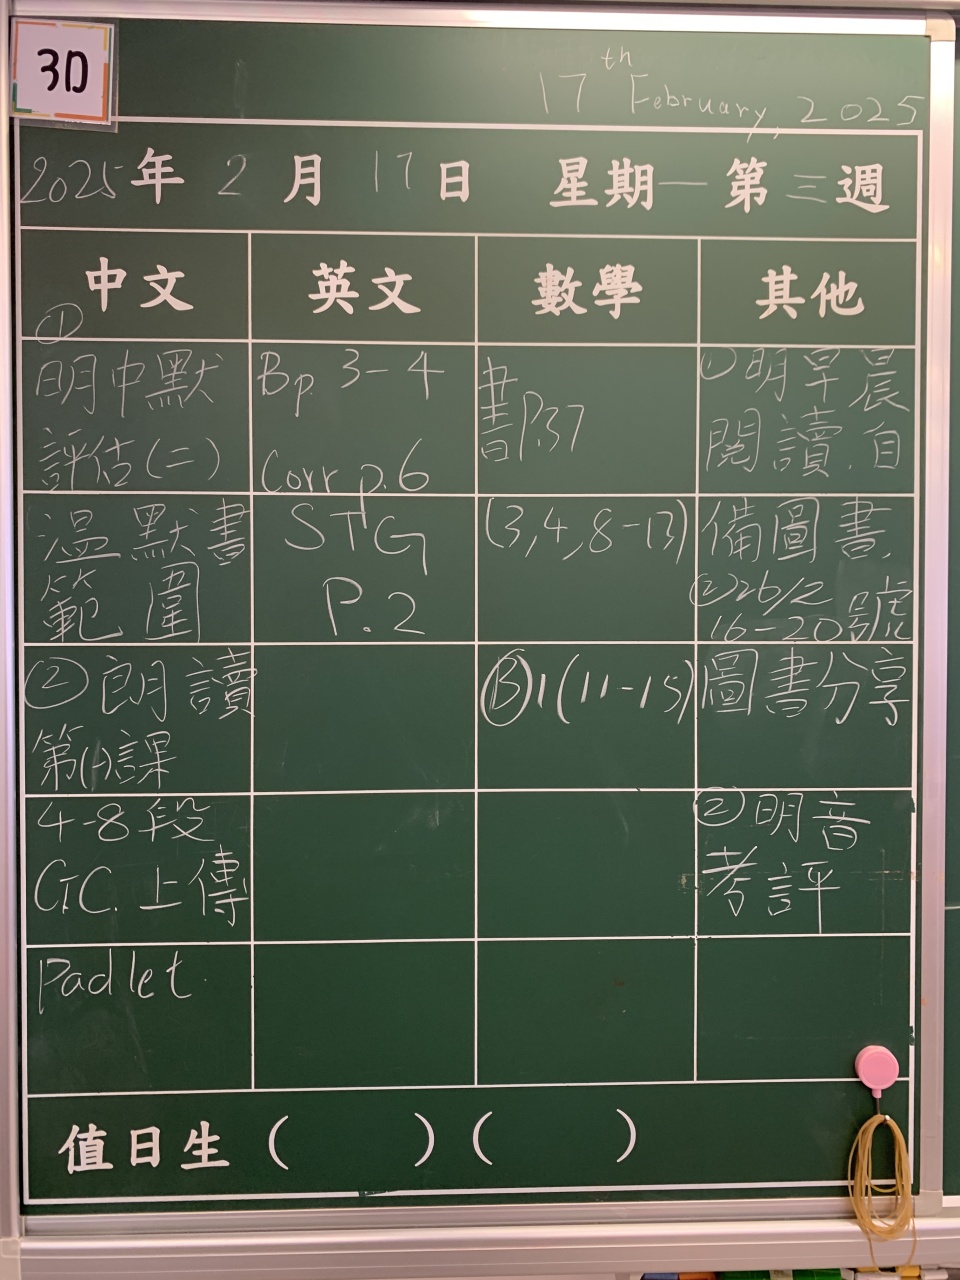 3D
17th February, 2025
2025年 2 月 17 日 星期一 第三週
中文
英文
數學
其他
①
明中默
評估(二)
溫默書
範圍
② 朗讀
第(一)課
4-8段
G.C. 上傳
Padlet
Bp 3-4
Corr p.6
STG
P.2
書P.37
(3,4,8-13)
Ⓑ1(11-15)
① 明早晨
閱讀.自
備圖書.
② 26/2
16-20號
圖書分享
② 明音
考評
值日生 (    ) (    )